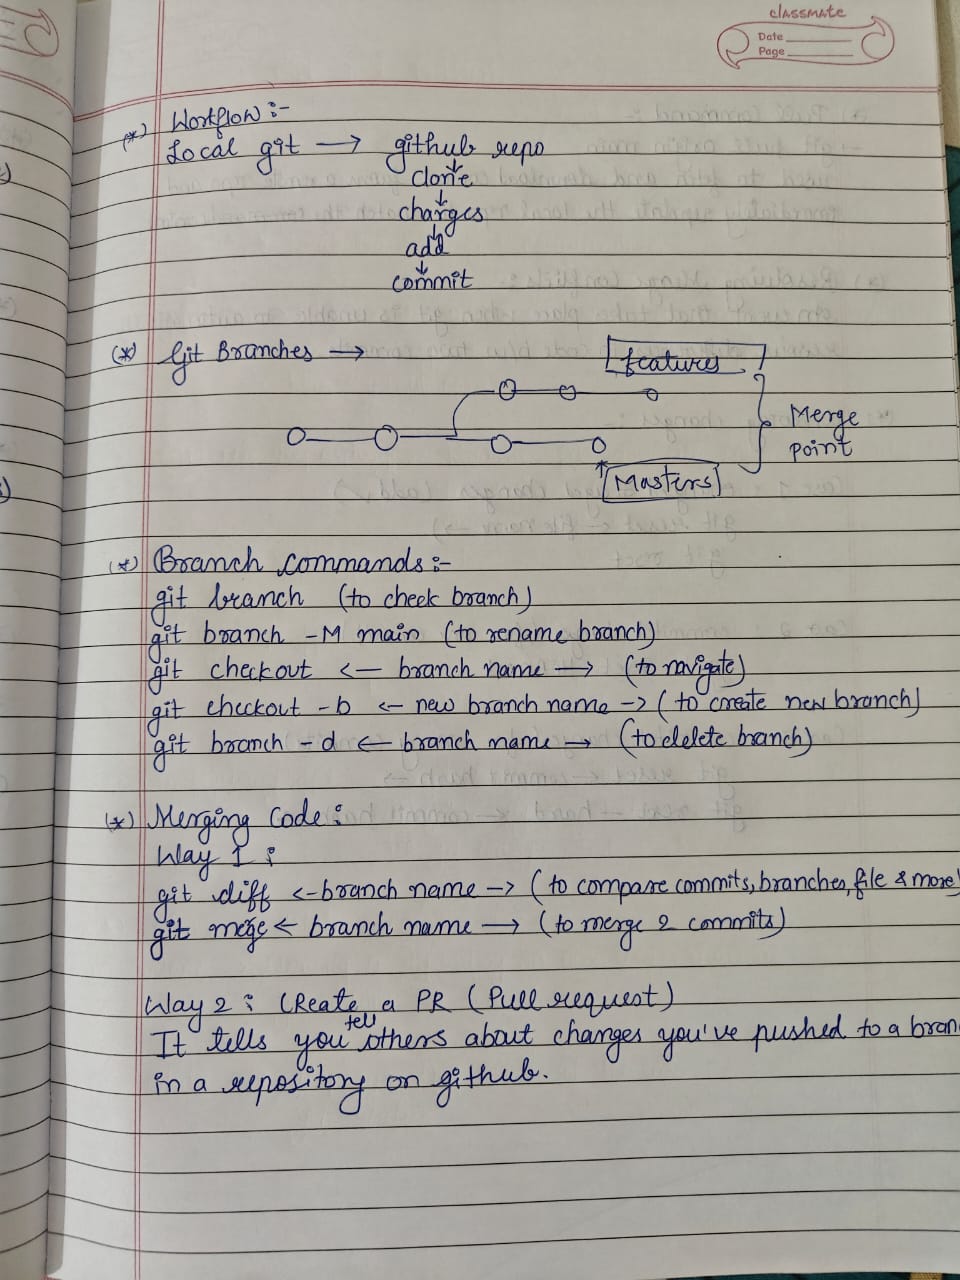 classmate
Date
Page
(*) Workflow :-
Local git → github repo
↓
clone
↓
changes
↓
add
↓
commit
(*) Git Branches →
features
Merge
Point
Masters
(*) Branch commands :-
git branch (to check branch)
git branch -M main (to rename branch)
git checkout <- branch name -> (to navigate)
git checkout -b <- new branch name -> (to create new branch)
git branch -d <- branch name -> (to delete branch)
(*) Merging Code :
Way 1 :
git diff <- branch name -> (to compare commits, branches, file & more)
git merge <- branch name -> (to merge 2 commits)
Way 2 : CReate a PR (Pull request)
It tells you tell others about changes you've pushed to a bran
in a repository on github.